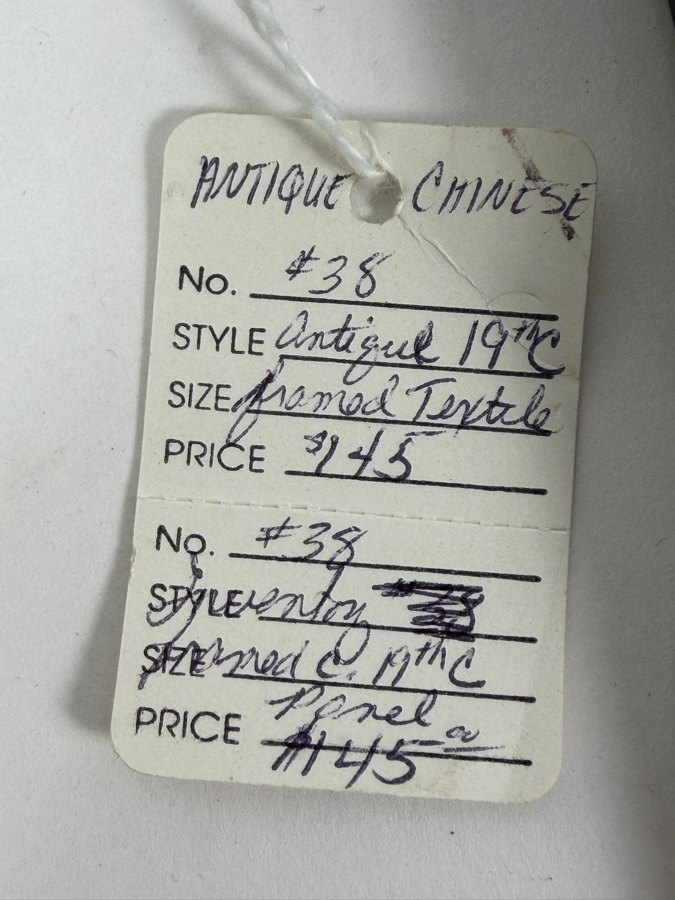 ANTIQUE CHINESE
No. #38
STYLE Antique 19thC
SIZE framed Textile
PRICE $145
No. #38
STYLE Inventory
SIZE framed C. 19th C
Panel
PRICE $145 00